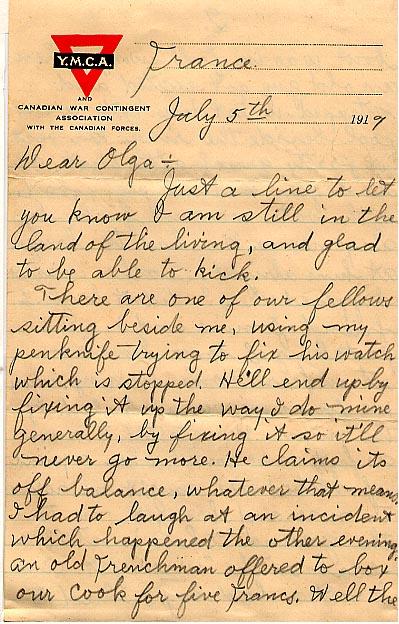 Y.M.C.A.
AND
CANADIAN WAR CONTINGENT
ASSOCIATION
WITH THE CANADIAN FORCES.
France.
July 5th 1917
Dear Olga :-
Just a line to let
you know I am still in the
land of the living, and glad
to be able to kick.
There are one of our fellows
sitting beside me, using my
penknife trying to fix his watch
which is stopped. He'll end up by
fixing it up the way I do mine
generally, by fixing it so it'll
never go more. He claims its
off balance, whatever that means,
I had to laugh at an incident
which happened the other evening,
an old Frenchman offered to box
our Cook for five Francs. Well the